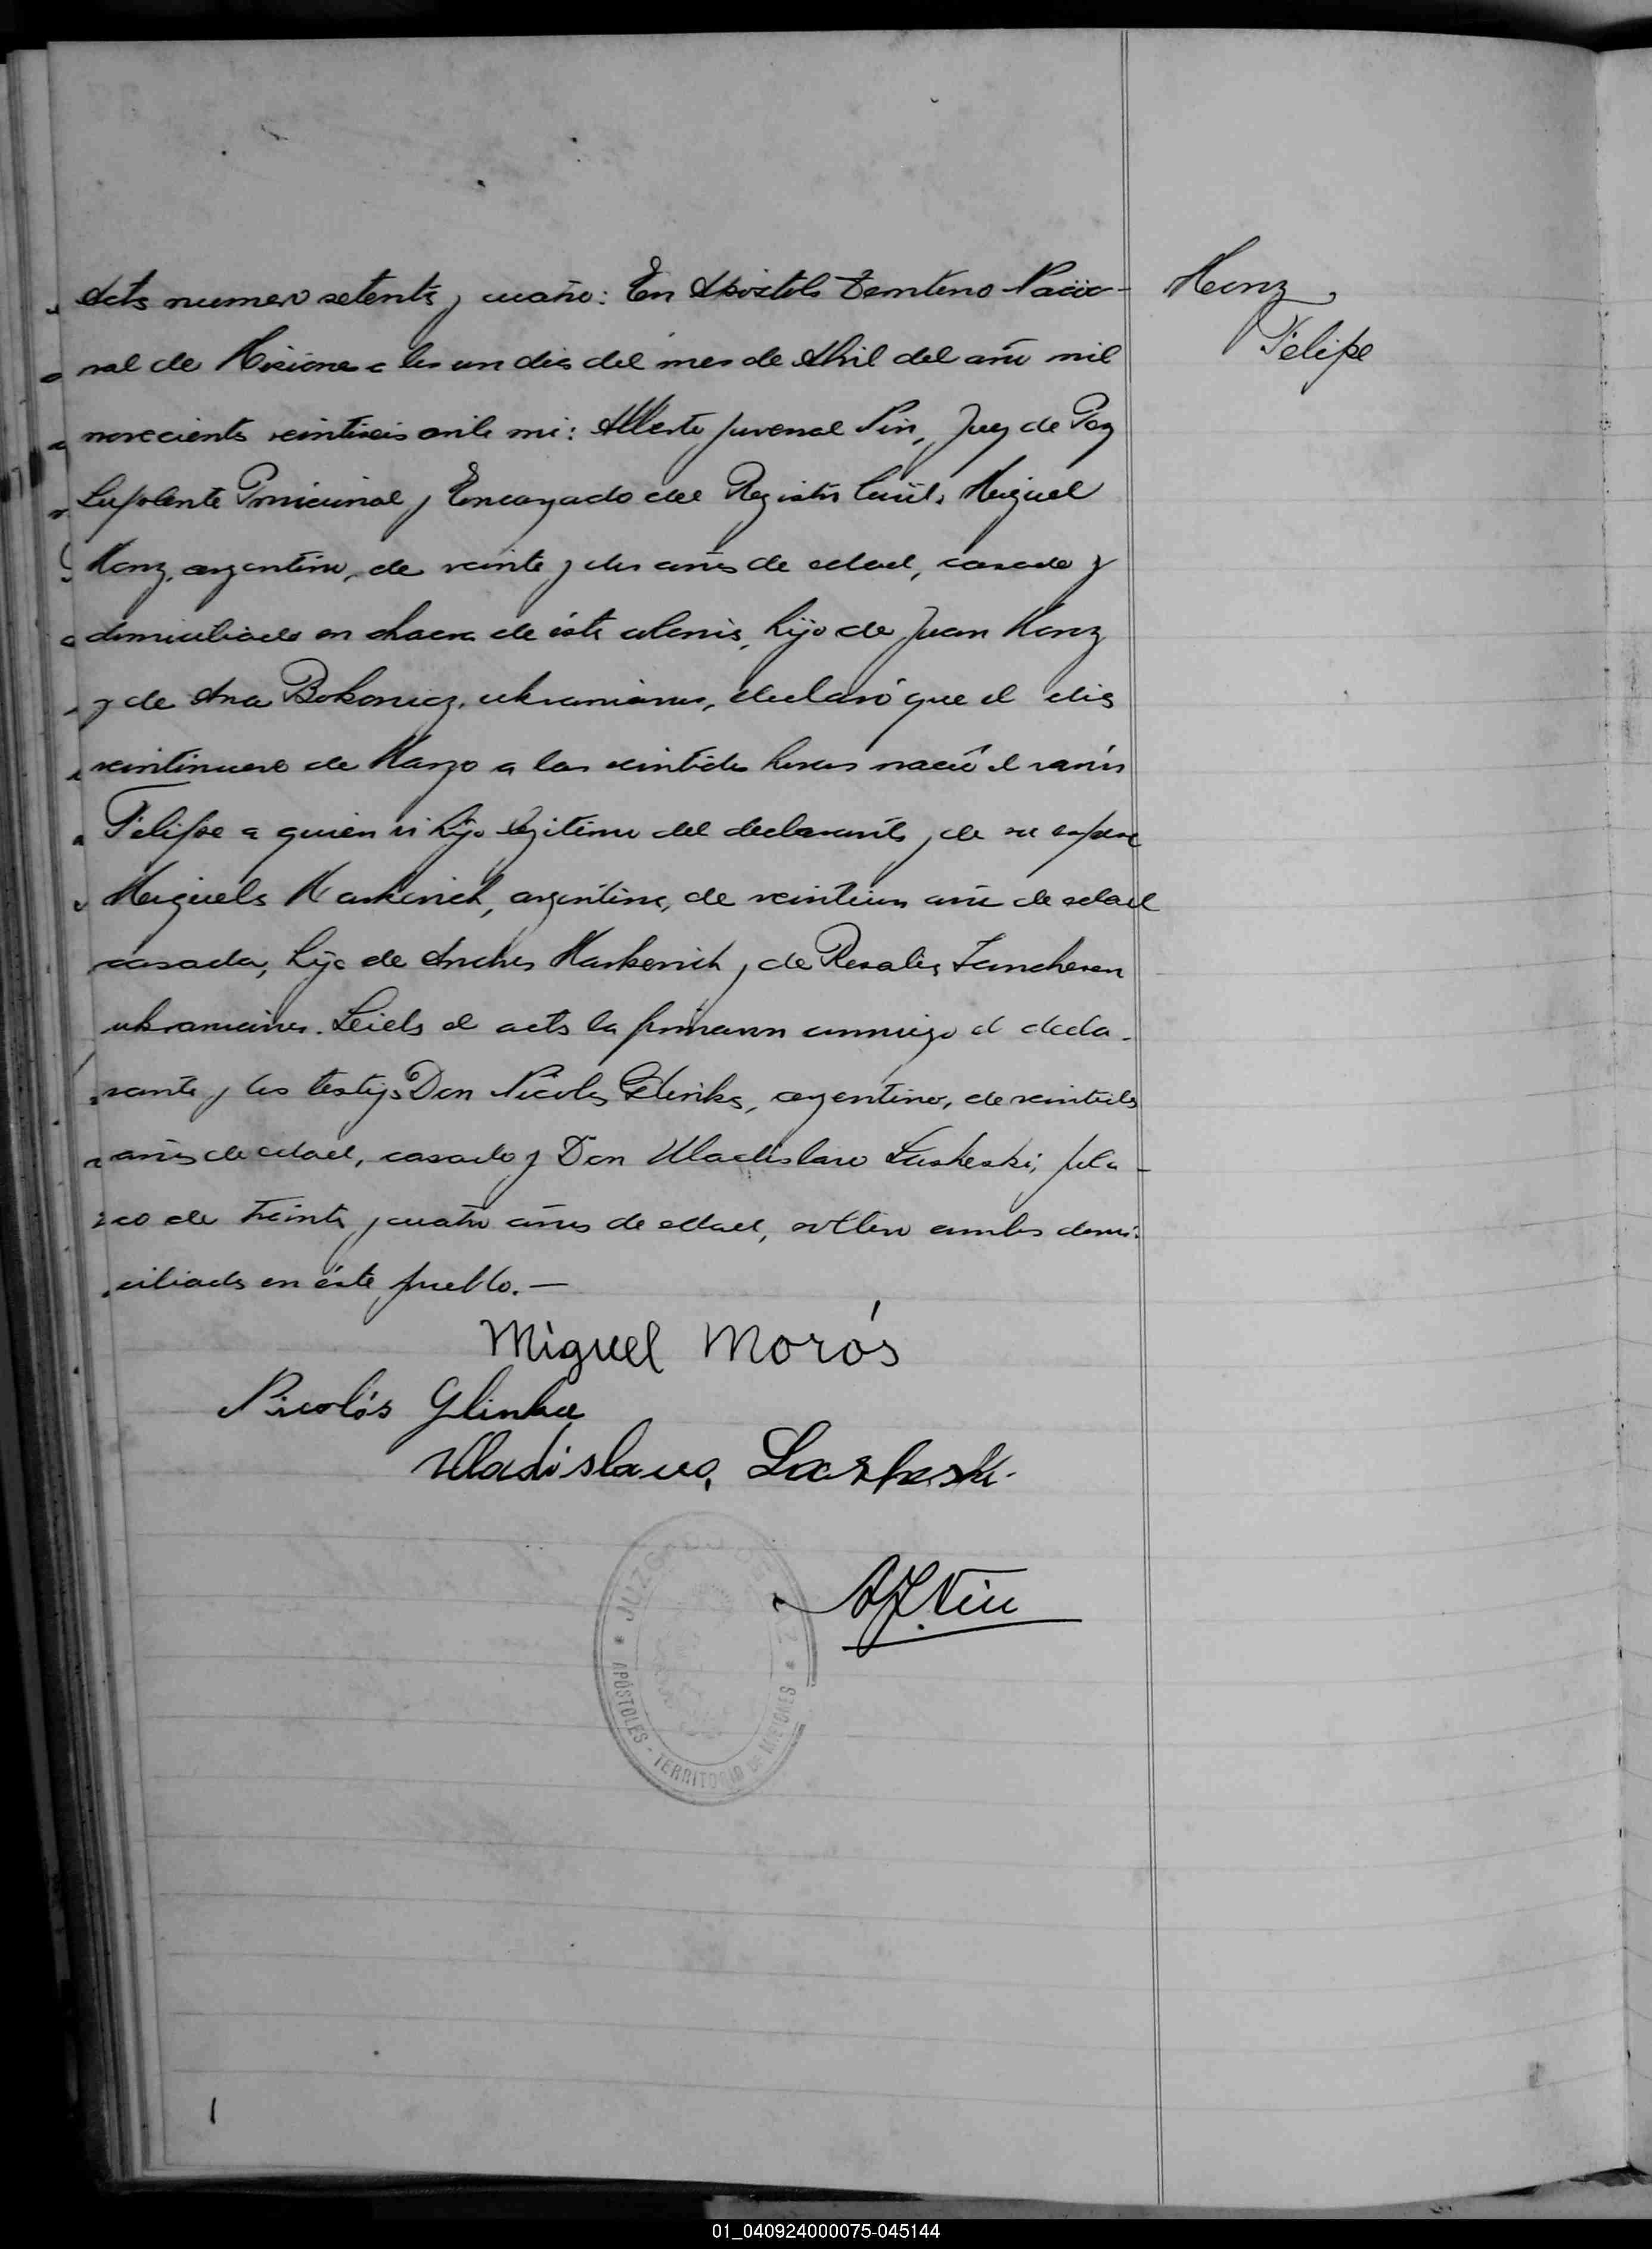 Acta numero setenta y cuatro: En Apóstoles Territorio Nacio-
nal de Misiones a los un dia del mes de Abril del año mil
novecientos veintiseis ante mi: Alberto Juvenal Nin, Juez de Paz
Suplente Provicional y Encargado del Registro Civil. Miguel
argentino, de veinte y dos años de edad, casado y
domiciliado en chacra de ésta colonia, hijo de Juan
y de Ana Bokowicz, ukranianos, declaró que el dia
veintinueve de Marzo a las veintidos horas nació el varón
Felipe a quien vi hijo legitimo del declarante y de su esposa
Miguela Markevich, argentina, de veintiun años de edad
casada, hija de Andres Markevich y de Rosalia
ukranianos. Leida el acta la firmaron conmigo el decla-
rante y los testigos Don Nicolas Glinka, argentino, de veintidos
años de edad, casado y Don Uladislavo Laskeski, pola-
co de treinta y cuatro años de edad, soltero ambos domi-
ciliados en éste pueblo.—
Miguel Morós
Nicolás Glinka
Uladislavo, Laskeski.
AJNin
JUZGADO DE PAZ
APÓSTOLES - TERRITORIO DE MISIONES
Felipe
01_040924000075-045144